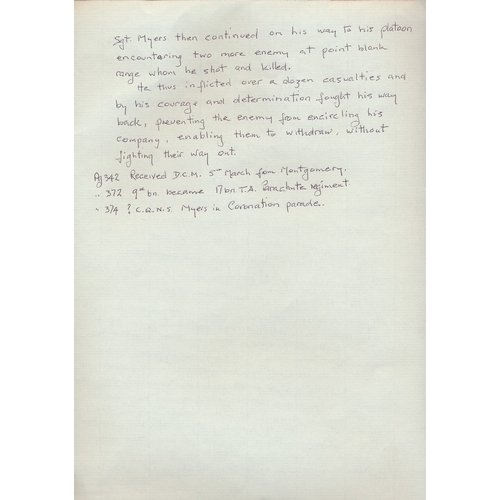 Sgt. Myers then continued on his way to his platoon
encountering two more enemy at point blank
range whom he shot and killed.
He thus inflicted over a dozen casualties and
by his courage and determination fought his way
back, preventing the enemy from encircling his
company, enabling them to withdraw, without
fighting their way out.
Pg 342 Received D.C.M. 5th March from Montgomery.
" 372 9th bn. became 17 bn T.A. Parachute regiment.
" 374 ? C.Q.M.S. Myers in Coronation parade.